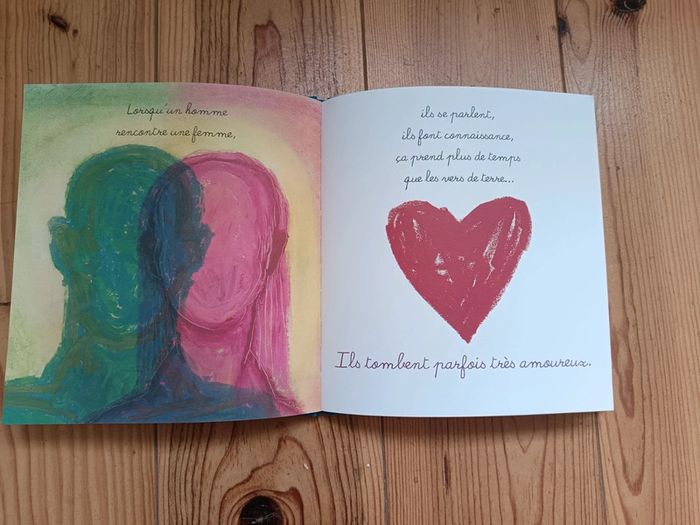 Lorsqu'un homme
rencontre une femme,
ils se parlent,
ils font connaissance,
ça prend plus de temps
que les vers de terre...
Ils tombent parfois très amoureux.